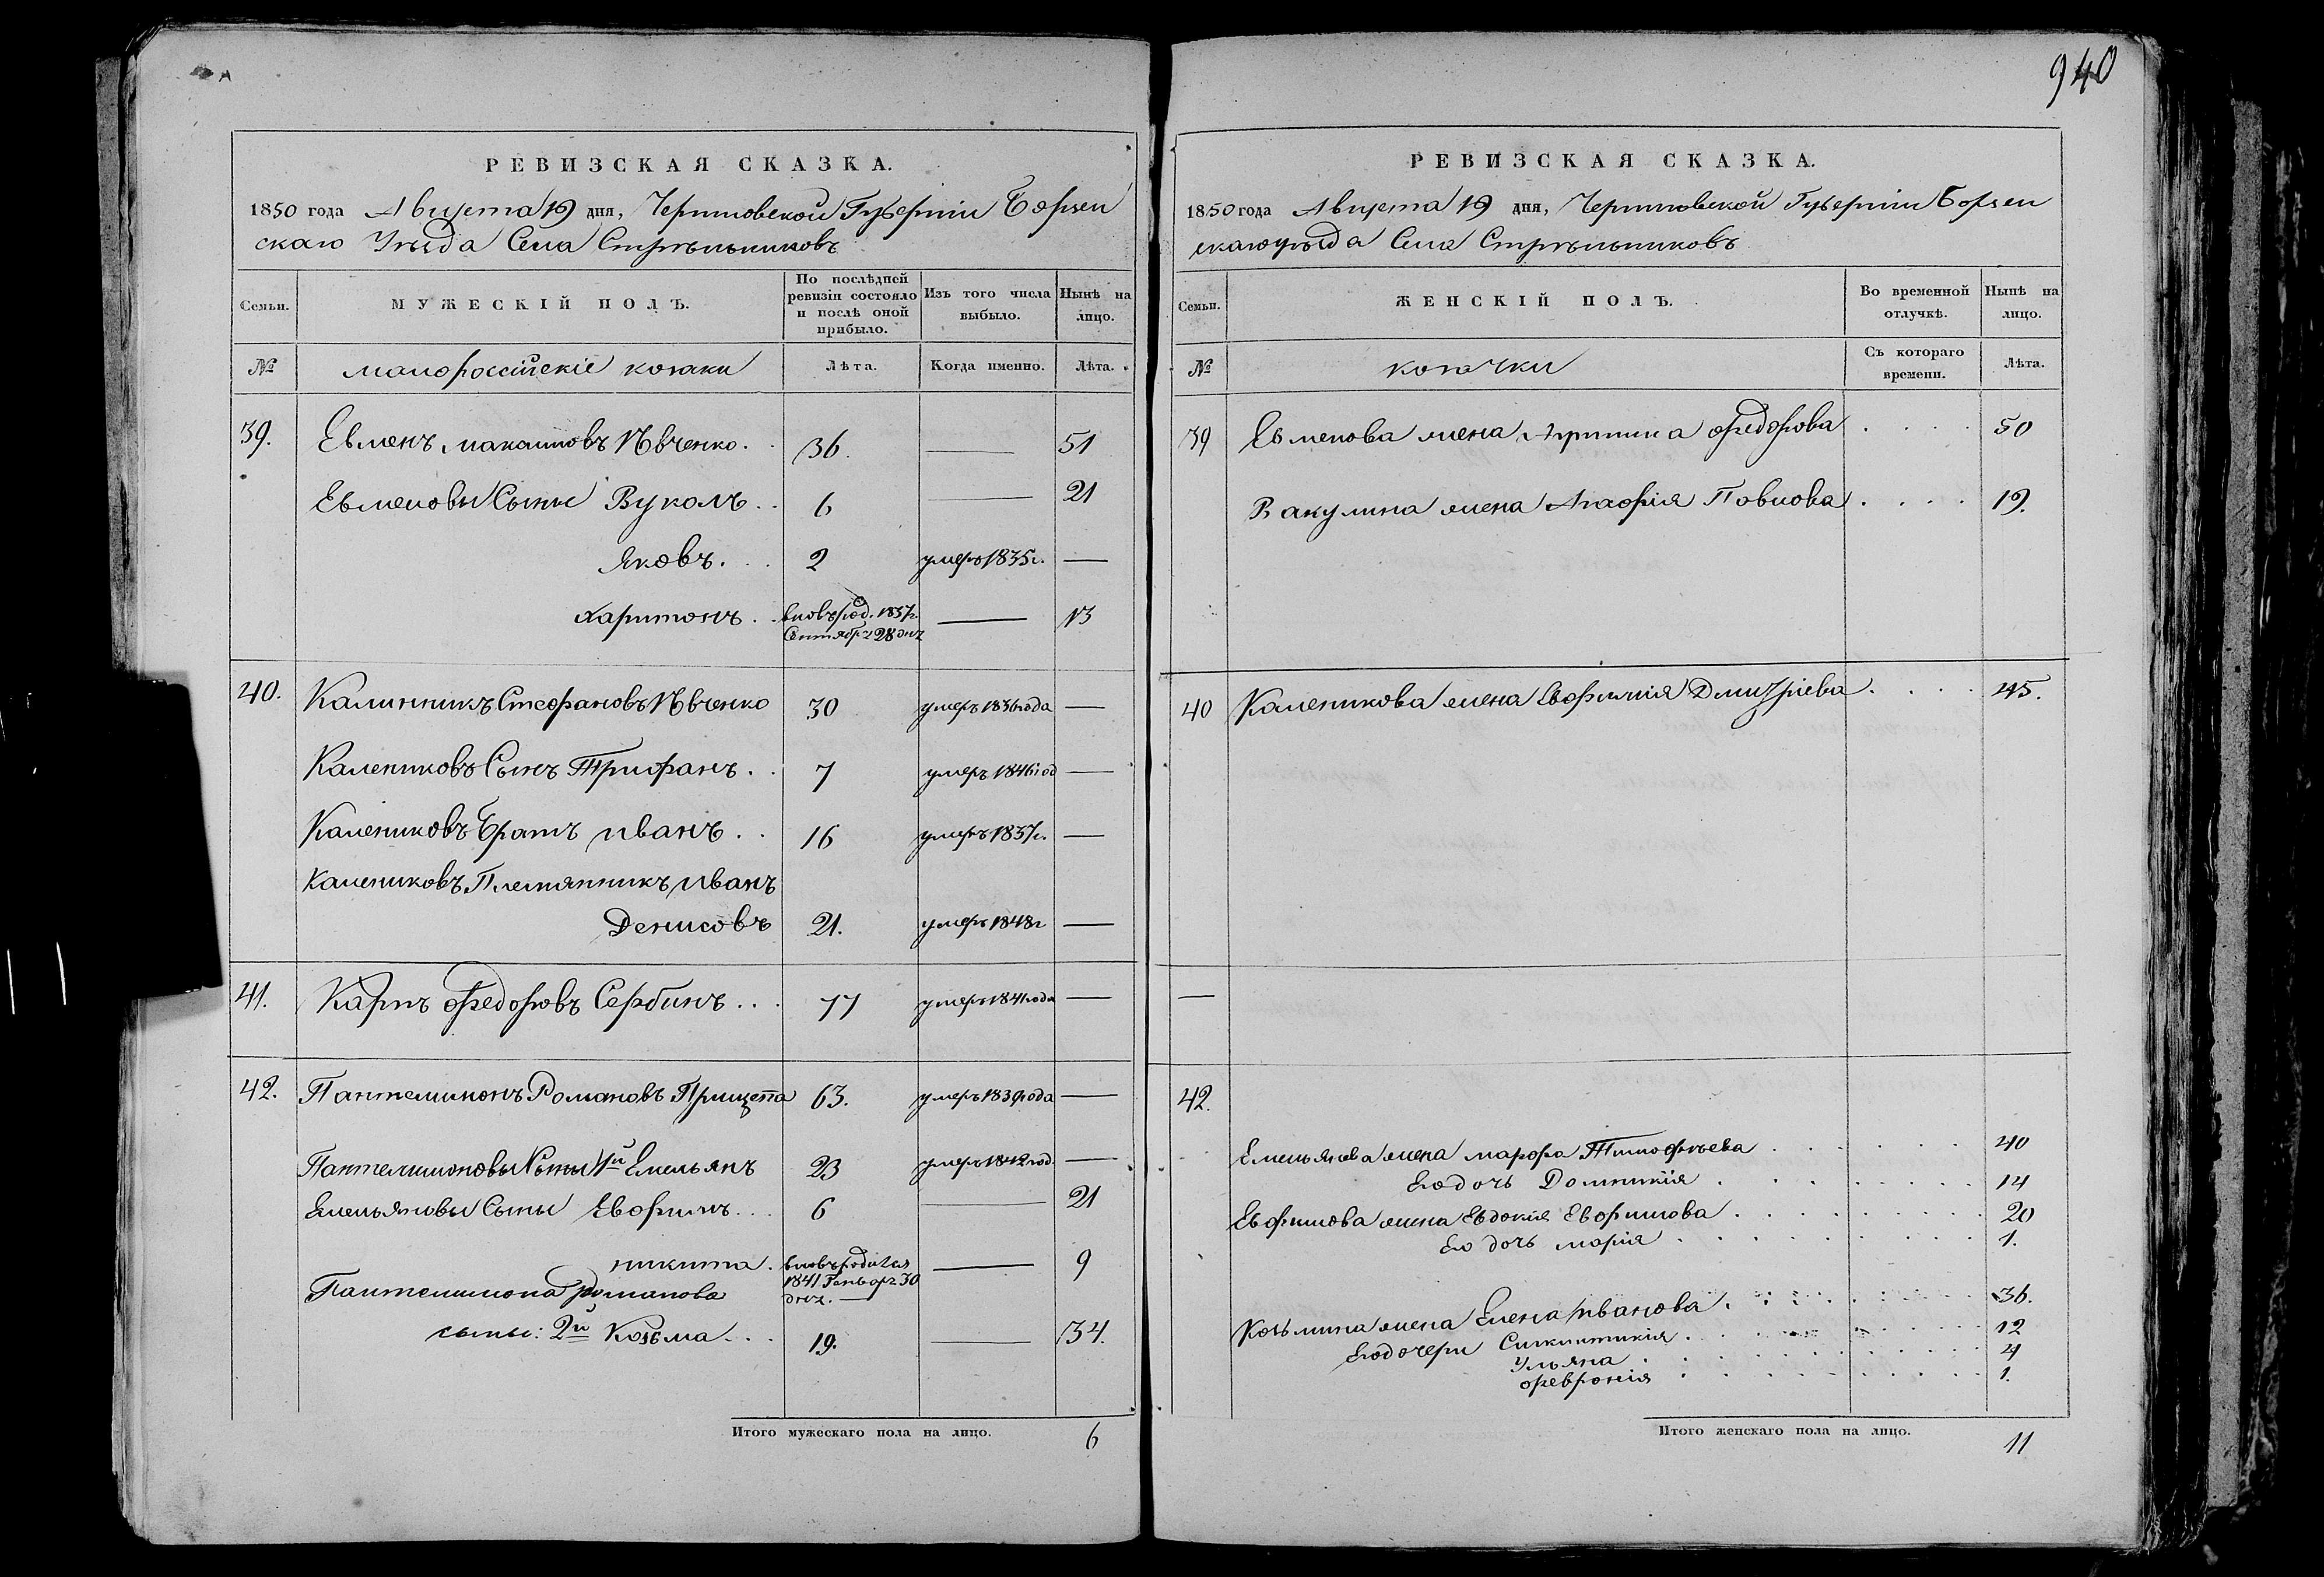 940
РЕВИЗСКАЯ СКАЗКА.
1850 года Августа 19 дня, Черниговской Губернии Борзен
скаго Уезда Села Стрельниковъ
Семьи. МУЖЕСКІЙ ПОЛЪ. По послѣдней ревизіи состояло и послѣ оной прибыло. Изъ того числа выбыло. Нынѣ на лицо.
№ малороссійскіе козаки Лѣта. Когда именно. Лѣта.
39. Евменъ Ивченко. 36. — 51
Евменовы Сыны Вуколъ 6 — 21
Яковъ 2 умеръ 1835г. —
Харитонъ вновь род. 1837г. Сентябр 28 дня — 13
40. Калинникъ Стефановъ Ивченко 30 умеръ 1836 года —
Калениковъ Сынъ Трифанъ 7 умеръ 1846 год —
Калениковъ Братъ Иванъ 16 умеръ 1837г. —
Калениковъ Племянникъ Иванъ
Денисовъ 21. умеръ 1848г —
41. Карпъ Федоровъ Сербинъ 77 умеръ 1841 года —
42. Пантелимонъ Романовъ Прищепа 63. умеръ 1839 года —
Пантелимоновы Сыны 1й Емельянъ 23 умеръ 1842 год. —
Емельяновы Сыны Евфимъ 6 — 21
Никита вновь родился 1841 Генваря 30 дня. — 9
Пантелимона Романова
сыны: 2й Козьма 19. — 34.
Итого мужескаго пола на лицо. 6
РЕВИЗСКАЯ СКАЗКА.
1850 года Августа 19 дня, Черниговской Губерніи Борзен
скаго уезда Села Стрѣльниковъ
Семьи. ЖЕНСКІЙ ПОЛЪ. Во временной отлучкѣ. Нынѣ на лицо.
№ козачки Съ котораго времени. Лѣта.
39 Евменова жена Федорова 50
Вакулина жена Агафія Павлова 19.
40 Каленикова жена Евфимія Дмитріева 45.
—
42.
Емельянова жена Марфа Тимофѣева 40
Ею дочь Домникія 14
Евфимова жена Евдокія Евфимова 20
Ею дочь Марія 1.
Козьмина жена Елена Иванова 36.
Ею дочери Синклитикія 12
Ульяна 4
Февронія 1.
Итого женскаго пола на лицо. 11